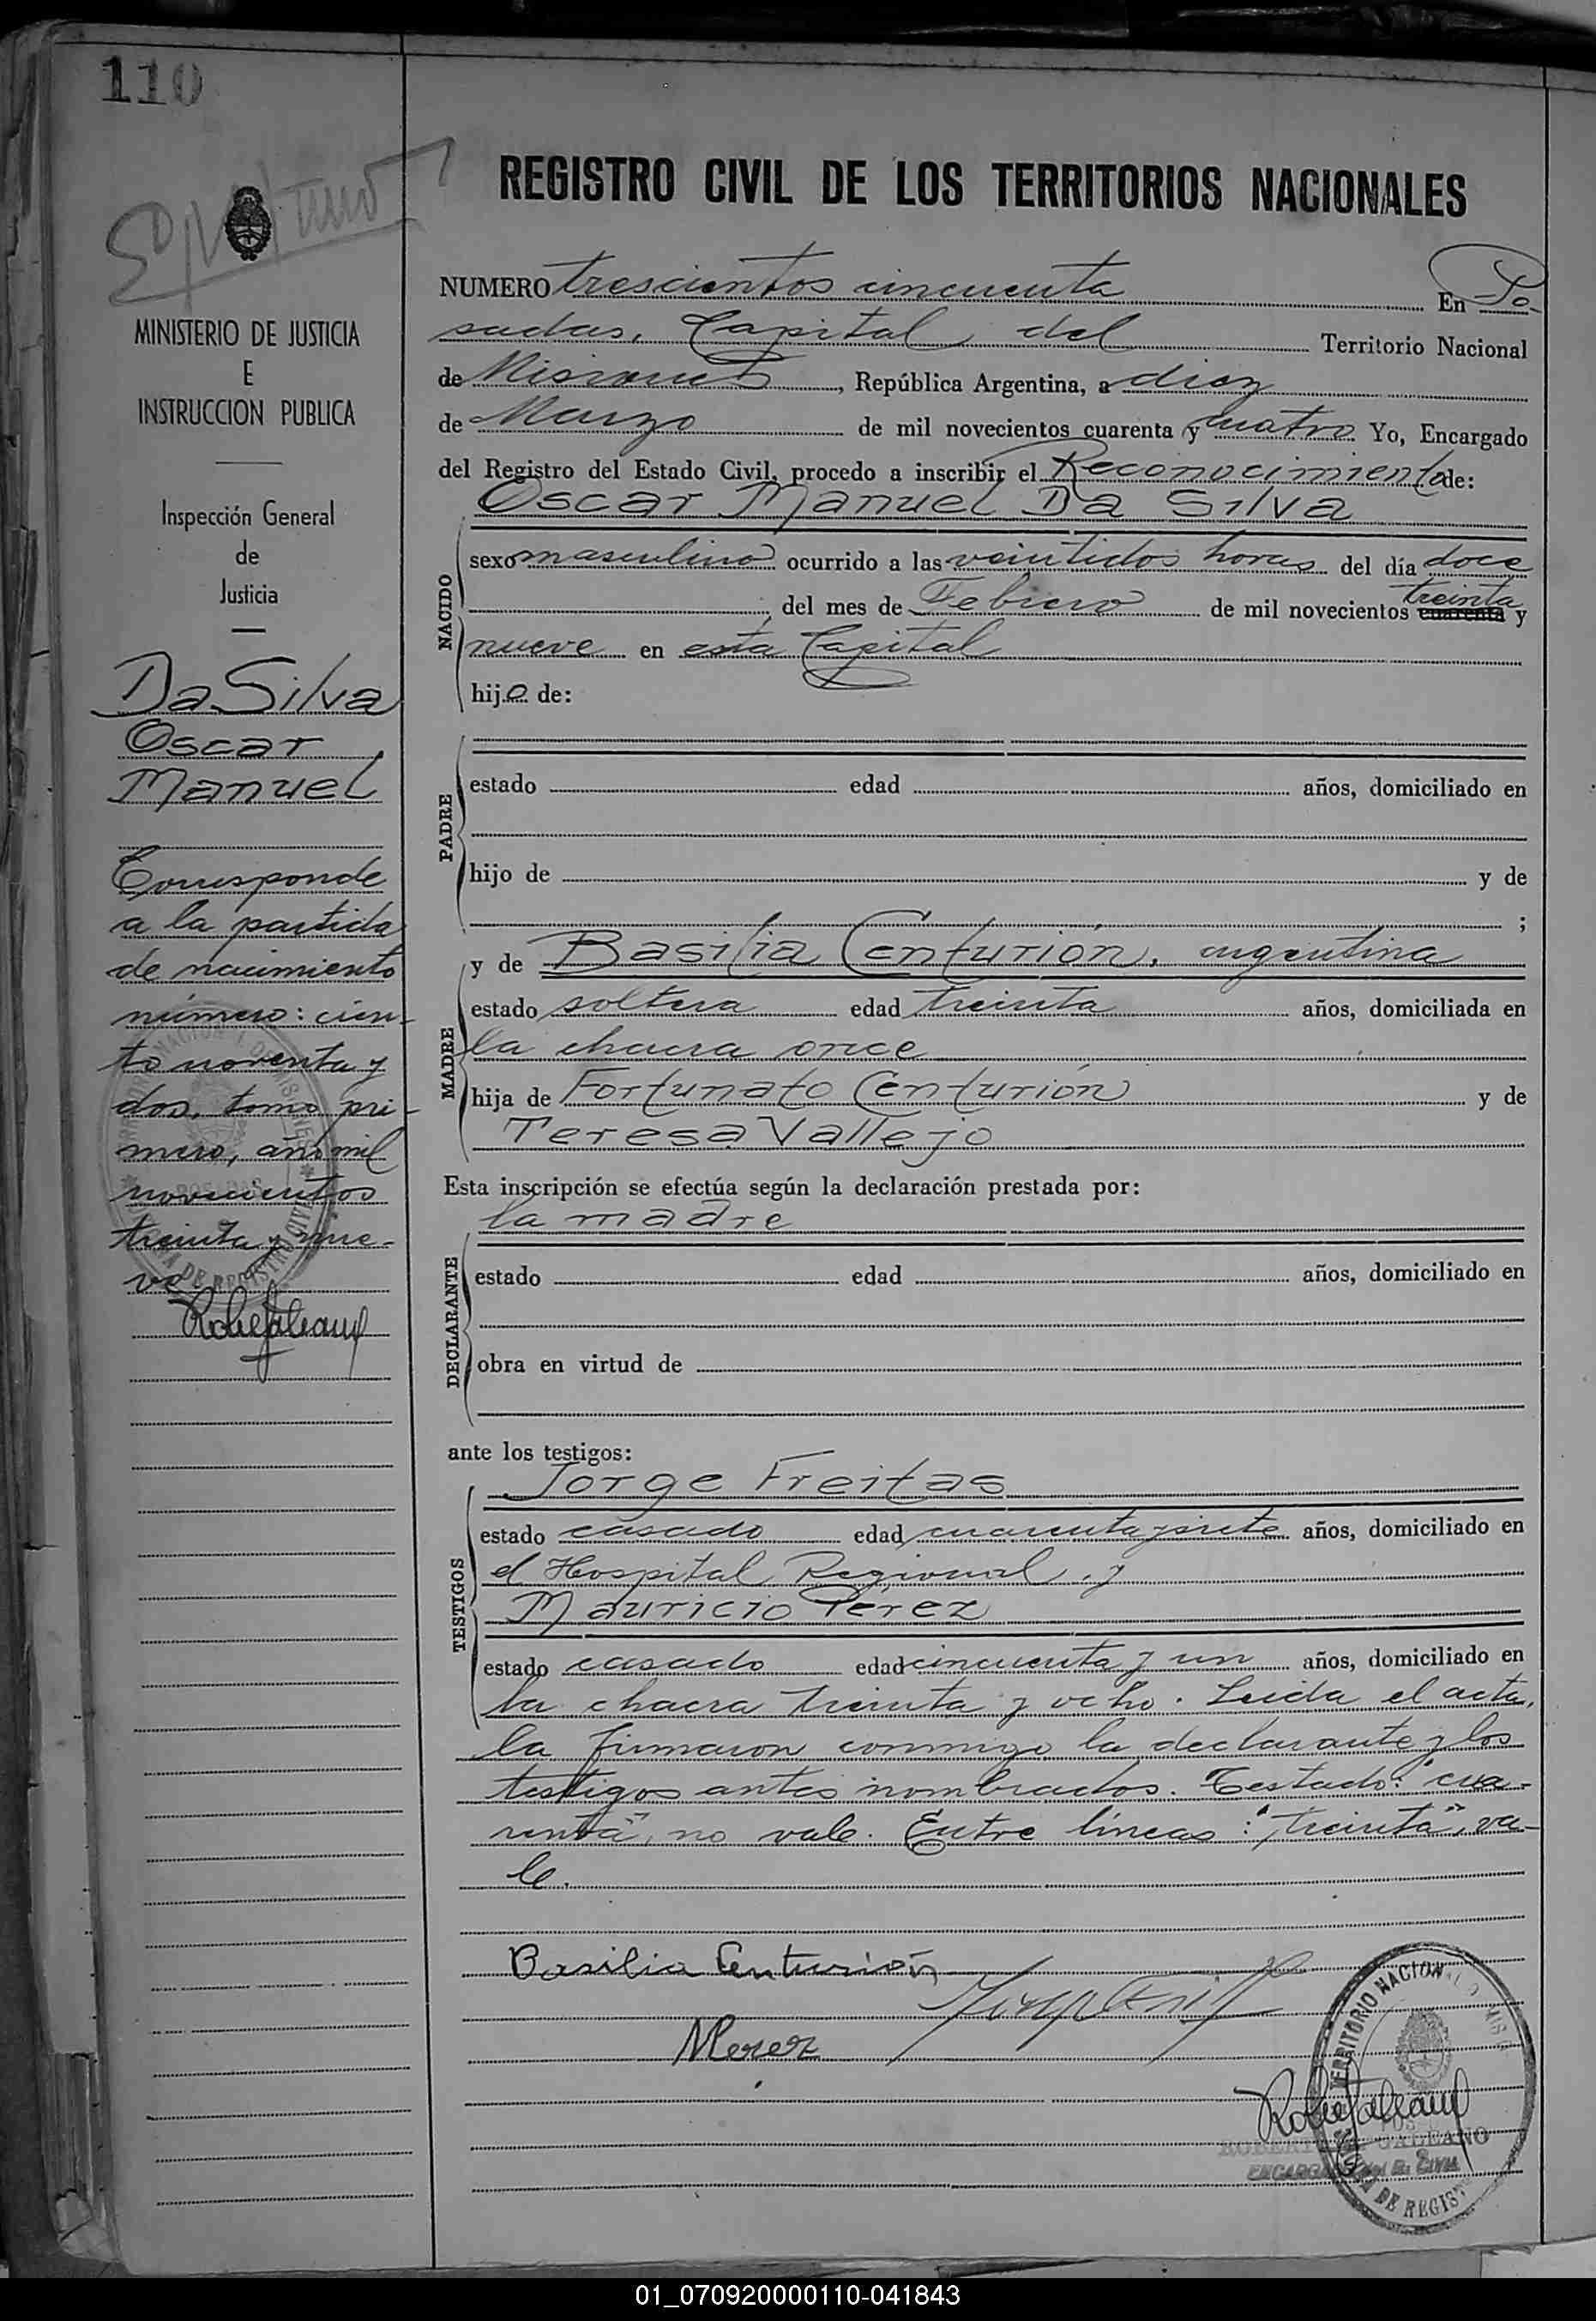 110
REGISTRO CIVIL DE LOS TERRITORIOS NACIONALES
MINISTERIO DE JUSTICIA
E
INSTRUCCION PUBLICA
Inspección General
de
Justicia
Da Silva
Oscar
Manuel
Corresponde
a la partida
de nacimiento
número: cien-
to noventa y
dos, tomo pri-
mero, año mil
novecientos
treinta y nue-
ve
NUMERO trescientos cincuenta En Po-
sadas, Capital del Territorio Nacional
de Misiones, República Argentina, a diez
de Marzo de mil novecientos cuarenta y cuatro Yo, Encargado
del Registro del Estado Civil, procedo a inscribir el Reconocimiento de:
Oscar Manuel Da Silva
NACIDO
sexo masculino ocurrido a las veintidos horas del día doce
treinta
del mes de Febrero de mil novecientos cuarenta y
nueve en esta Capital
hijo de:
PADRE
estado edad años, domiciliado en
hijo de y de
;
y de Basilia Centurión, argentina
MADRE
estado soltera edad treinta años, domiciliada en
la chacra once
hija de Fortunato Centurión y de
Teresa Vallejo
Esta inscripción se efectúa según la declaración prestada por:
la madre
DECLARANTE
estado edad años, domiciliado en
obra en virtud de
ante los testigos:
Jorge Freitas
TESTIGOS
estado casado edad cuarenta y siete años, domiciliado en
el Hospital Regional, y
Mauricio Pérez
estado casado edad cincuenta y un años, domiciliado en
la chacra treinta y ocho. Leida el acta,
la firmaron conmigo la declarante y los
testigos antes nombrados. Testado: "cua-
renta", no vale. Entre líneas: "treinta", va-
le.
Basilia Centurión
MPerez
TERRITORIO NACIONAL D MIS
ROBERTO GALEANO
ENCARGADO del R. CIVIL
DE REGIST
01_070920000110-041843